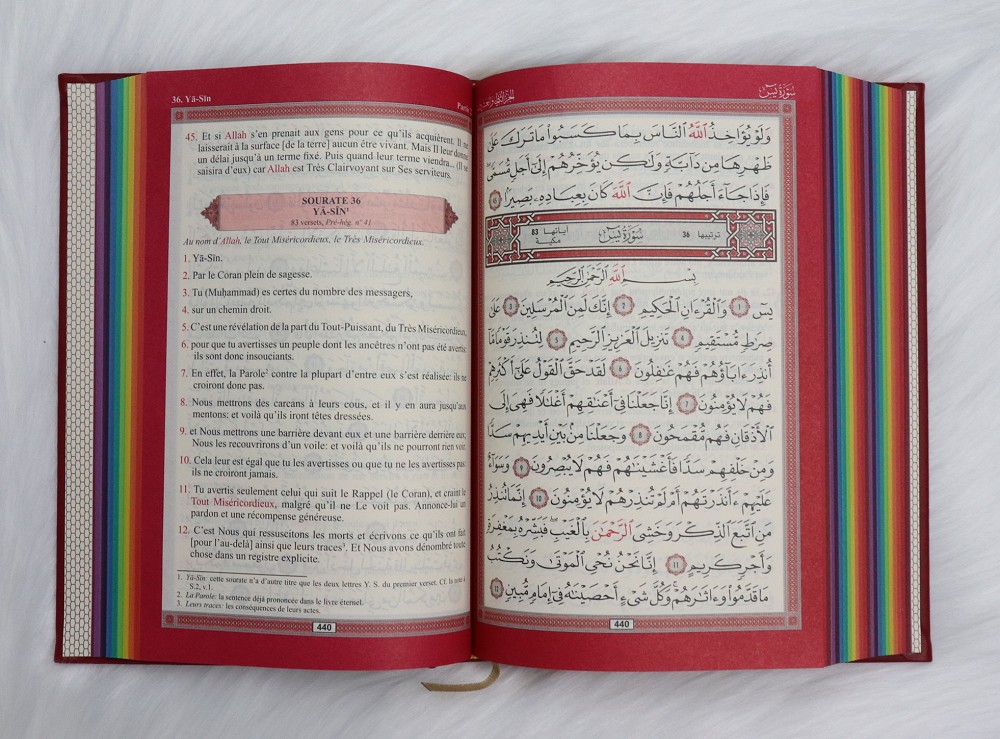 36. Yâ-Sîn
45. Et si Allah s'en prenait aux gens pour ce qu'ils acquièrent. Il ne
laisserait à la surface [de la terre] aucun être vivant. Mais Il leur donne
un délai jusqu'à un terme fixé. Puis quand leur terme viendra... (Il se
saisira d'eux) car Allah est Très Clairvoyant sur Ses serviteurs.
SOURATE 36
YÂ-SÎN¹
83 versets, Pré-hég. n° 41
Au nom d'Allah, le Tout Miséricordieux, le Très Miséricordieux.
1. Yâ-Sîn.
2. Par le Coran plein de sagesse.
3. Tu (Muḥammad) es certes du nombre des messagers,
4. sur un chemin droit.
5. C'est une révélation de la part du Tout-Puissant, du Très Miséricordieux,
6. pour que tu avertisses un peuple dont les ancêtres n'ont pas été avertis
ils sont donc insouciants.
7. En effet, la Parole² contre la plupart d'entre eux s'est réalisée: ils ne
croiront donc pas.
8. Nous mettrons des carcans à leurs cous, et il y en aura jusqu'aux
mentons: et voilà qu'ils iront têtes dressées.
9. et Nous mettrons une barrière devant eux et une barrière derrière eux;
Nous les recouvrirons d'un voile: et voilà qu'ils ne pourront rien voir.
10. Cela leur est égal que tu les avertisses ou que tu ne les avertisses pas:
ils ne croiront jamais.
11. Tu avertis seulement celui qui suit le Rappel (le Coran), et craint le
Tout Miséricordieux, malgré qu'il ne Le voit pas. Annonce-lui un
pardon et une récompense généreuse.
12. C'est Nous qui ressuscitons les morts et écrivons ce qu'ils ont fait
[pour l'au-delà] ainsi que leurs traces³. Et Nous avons dénombré toute
chose dans un registre explicite.
1. Yâ-Sîn: cette sourate n'a d'autre titre que les deux lettres Y. S. du premier verset. Cf. la note à
S.2, v.1.
2. La Parole: la sentence déjà prononcée dans le livre éternel.
3. Leurs traces: les conséquences de leurs actes.
440
سُورَةُ يسٓ
وَلَوْ يُؤَاخِذُ ٱللَّهُ ٱلنَّاسَ بِمَا كَسَبُوا۟ مَا تَرَكَ عَلَىٰ
ظَهْرِهَا مِن دَآبَّةٍ وَلَٰكِن يُؤَخِّرُهُمْ إِلَىٰٓ أَجَلٍ مُّسَمًّى
فَإِذَا جَآءَ أَجَلُهُمْ فَإِنَّ ٱللَّهَ كَانَ بِعِبَادِهِۦ بَصِيرًۢا
ترتيبها 36 سُورَةُ يسٓ آياتها 83 مكية
بِسْمِ ٱللَّهِ ٱلرَّحْمَٰنِ ٱلرَّحِيمِ
يسٓ ١ وَٱلْقُرْءَانِ ٱلْحَكِيمِ ٢ إِنَّكَ لَمِنَ ٱلْمُرْسَلِينَ ٣ عَلَىٰ
صِرَٰطٍ مُّسْتَقِيمٍ ٤ تَنزِيلَ ٱلْعَزِيزِ ٱلرَّحِيمِ ٥ لِتُنذِرَ قَوْمًا مَّآ
أُنذِرَ ءَابَآؤُهُمْ فَهُمْ غَٰفِلُونَ ٦ لَقَدْ حَقَّ ٱلْقَوْلُ عَلَىٰٓ أَكْثَرِهِمْ
فَهُمْ لَا يُؤْمِنُونَ ٧ إِنَّا جَعَلْنَا فِىٓ أَعْنَٰقِهِمْ أَغْلَٰلًا فَهِىَ إِلَى
ٱلْأَذْقَانِ فَهُم مُّقْمَحُونَ ٨ وَجَعَلْنَا مِنۢ بَيْنِ أَيْدِيهِمْ سَدًّا
وَمِنْ خَلْفِهِمْ سَدًّا فَأَغْشَيْنَٰهُمْ فَهُمْ لَا يُبْصِرُونَ ٩ وَسَوَآءٌ
عَلَيْهِمْ ءَأَنذَرْتَهُمْ أَمْ لَمْ تُنذِرْهُمْ لَا يُؤْمِنُونَ ١٠ إِنَّمَا تُنذِرُ
مَنِ ٱتَّبَعَ ٱلذِّكْرَ وَخَشِىَ ٱلرَّحْمَٰنَ بِٱلْغَيْبِ فَبَشِّرْهُ بِمَغْفِرَةٍ
وَأَجْرٍ كَرِيمٍ ١١ إِنَّا نَحْنُ نُحْىِ ٱلْمَوْتَىٰ وَنَكْتُبُ
مَا قَدَّمُوا۟ وَءَاثَٰرَهُمْ وَكُلَّ شَىْءٍ أَحْصَيْنَٰهُ فِىٓ إِمَامٍ مُّبِينٍ ١٢
440